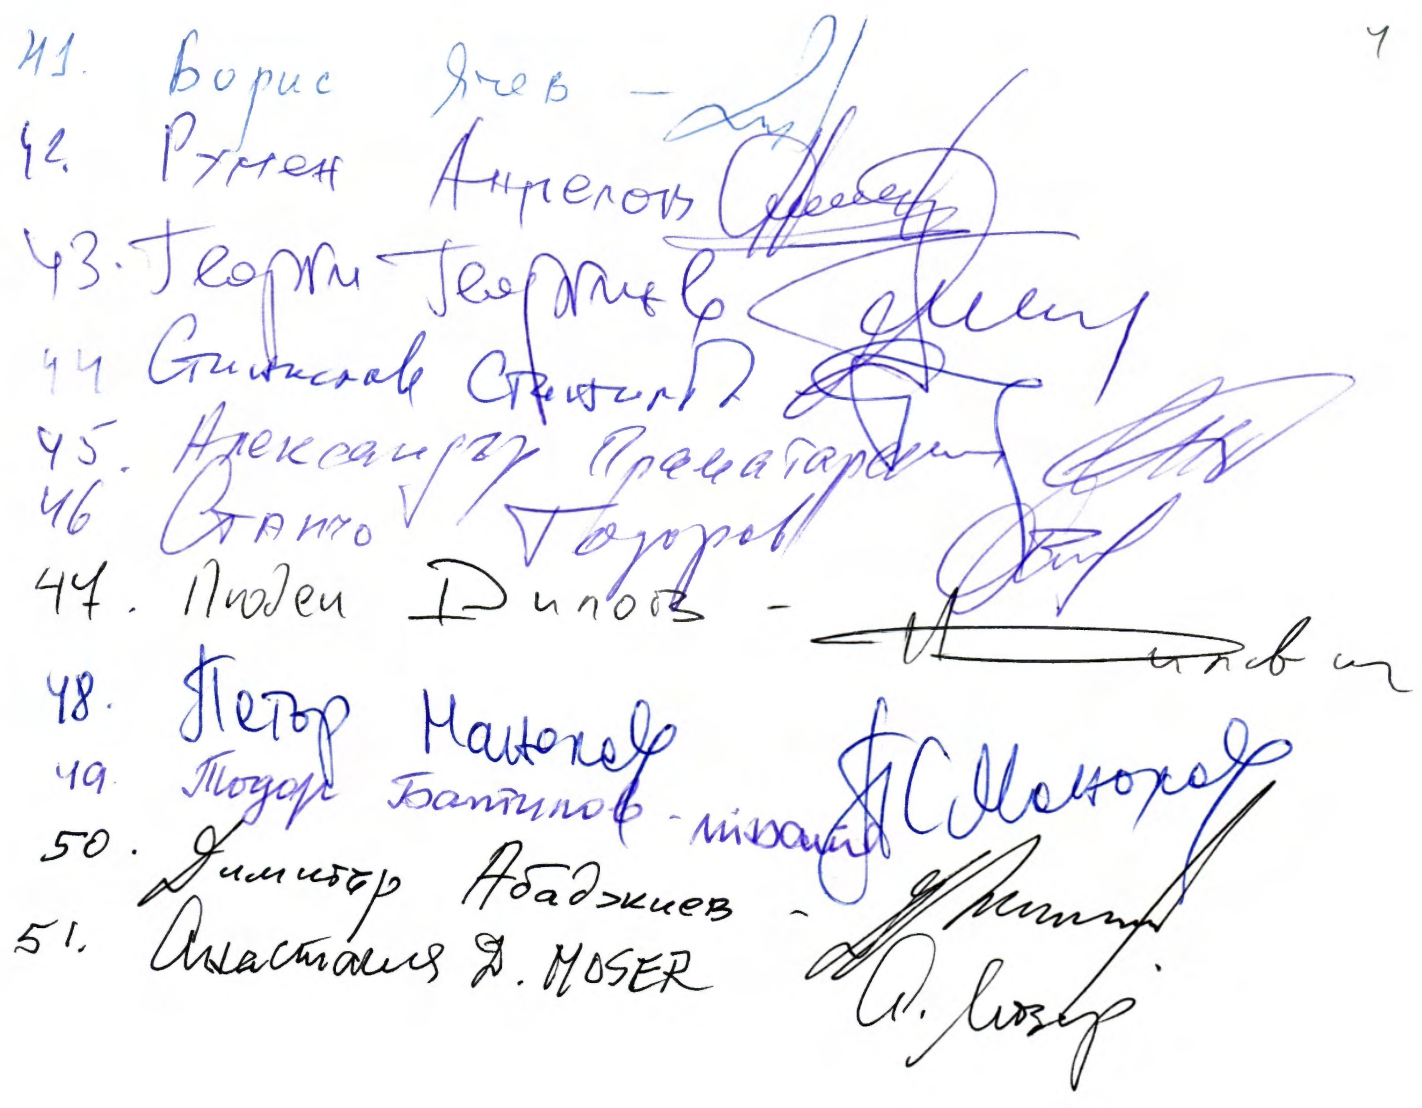 4
41. Борис Ячев -
42. Румен Ангелов
43. Георги Георгиев
44 Станислав Станилов
45. Александър Праматарски
46 Станчо Тодоров
47. Любен Дилов -
48. Петър Манолов П С Манолов
49. Тодор Батилов -
50. Димитър Абаджиев -
51. Анастасия Д. MOSER А. Мозер